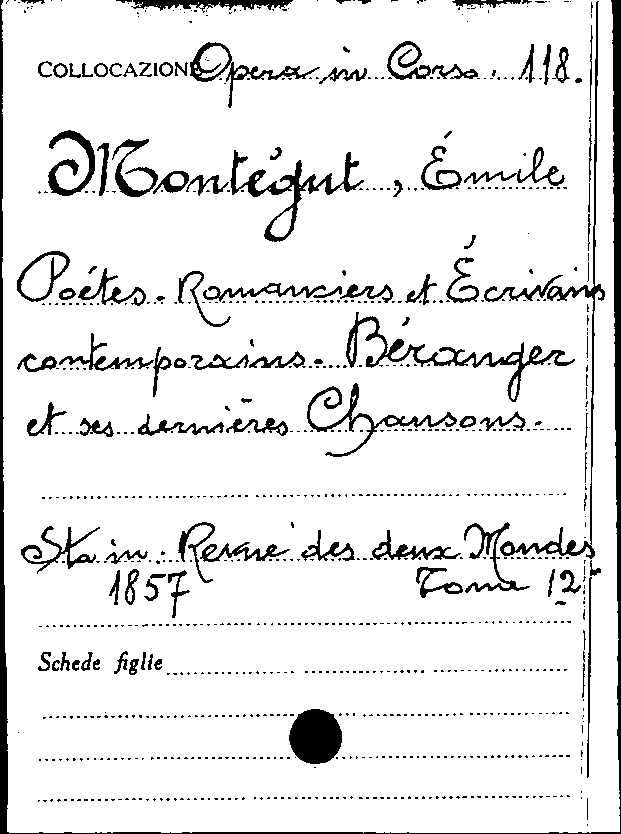 COLLOCAZIONE Opera in Corso. 118.
Montégut, Émile
Poétes. Romanciers et Écrivains
contemporains. Béranger
et ses dernières Chansons.
Sta in: Revue des deux Mondes
1857 Tome 12
Schede figlie